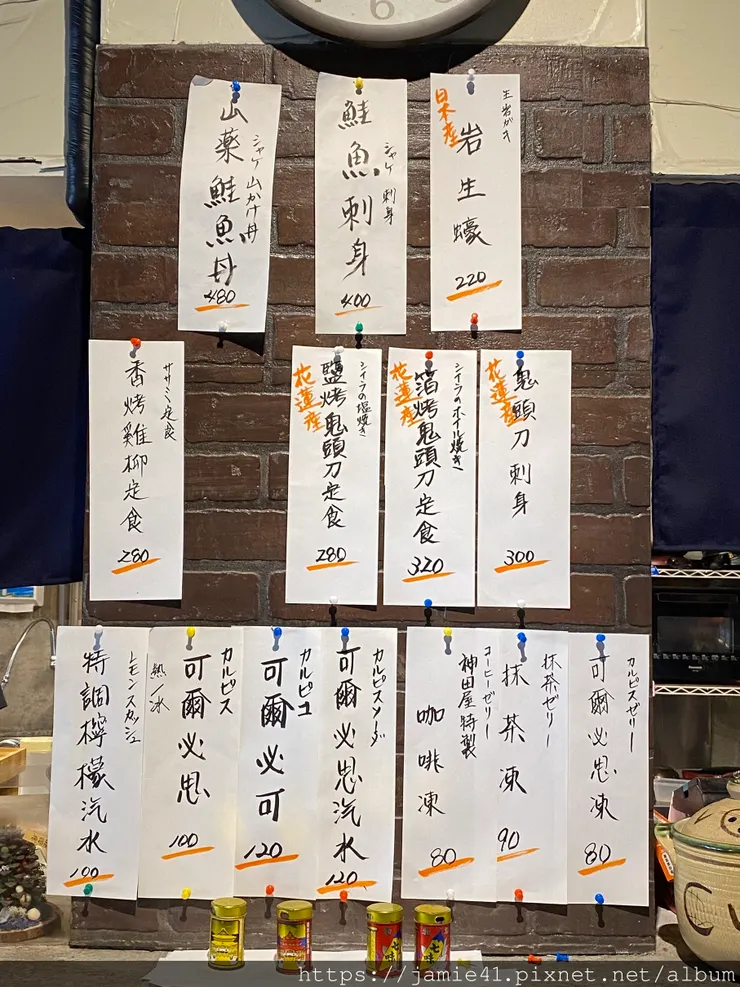 6
生岩がき
日本産
岩生蠔
220
シャケ 刺身
鮭魚刺身
400
シャケ 山かけ丼
山薬鮭魚丼
480
花蓮産
鬼頭刀刺身
300
シイラのホイル焼き
花蓮産
箔烤鬼頭刀定食
320
シイラの塩焼き
花蓮産
鹽烤鬼頭刀定食
280
ササミ定食
香烤雞柳定食
280
カルピスゼリー
可爾必思凍
80
抹茶ゼリー
抹茶凍
90
コーヒーゼリー
神田屋特製
咖啡凍
80
カルピスソーダ
可爾必思汽水
120
カルピコ
可爾必可
120
カルピス
可爾必思
熱/冰
100
レモンスカッシュ
特調檸檬汽水
100
七味
https://jamie41.pixnet.net/album